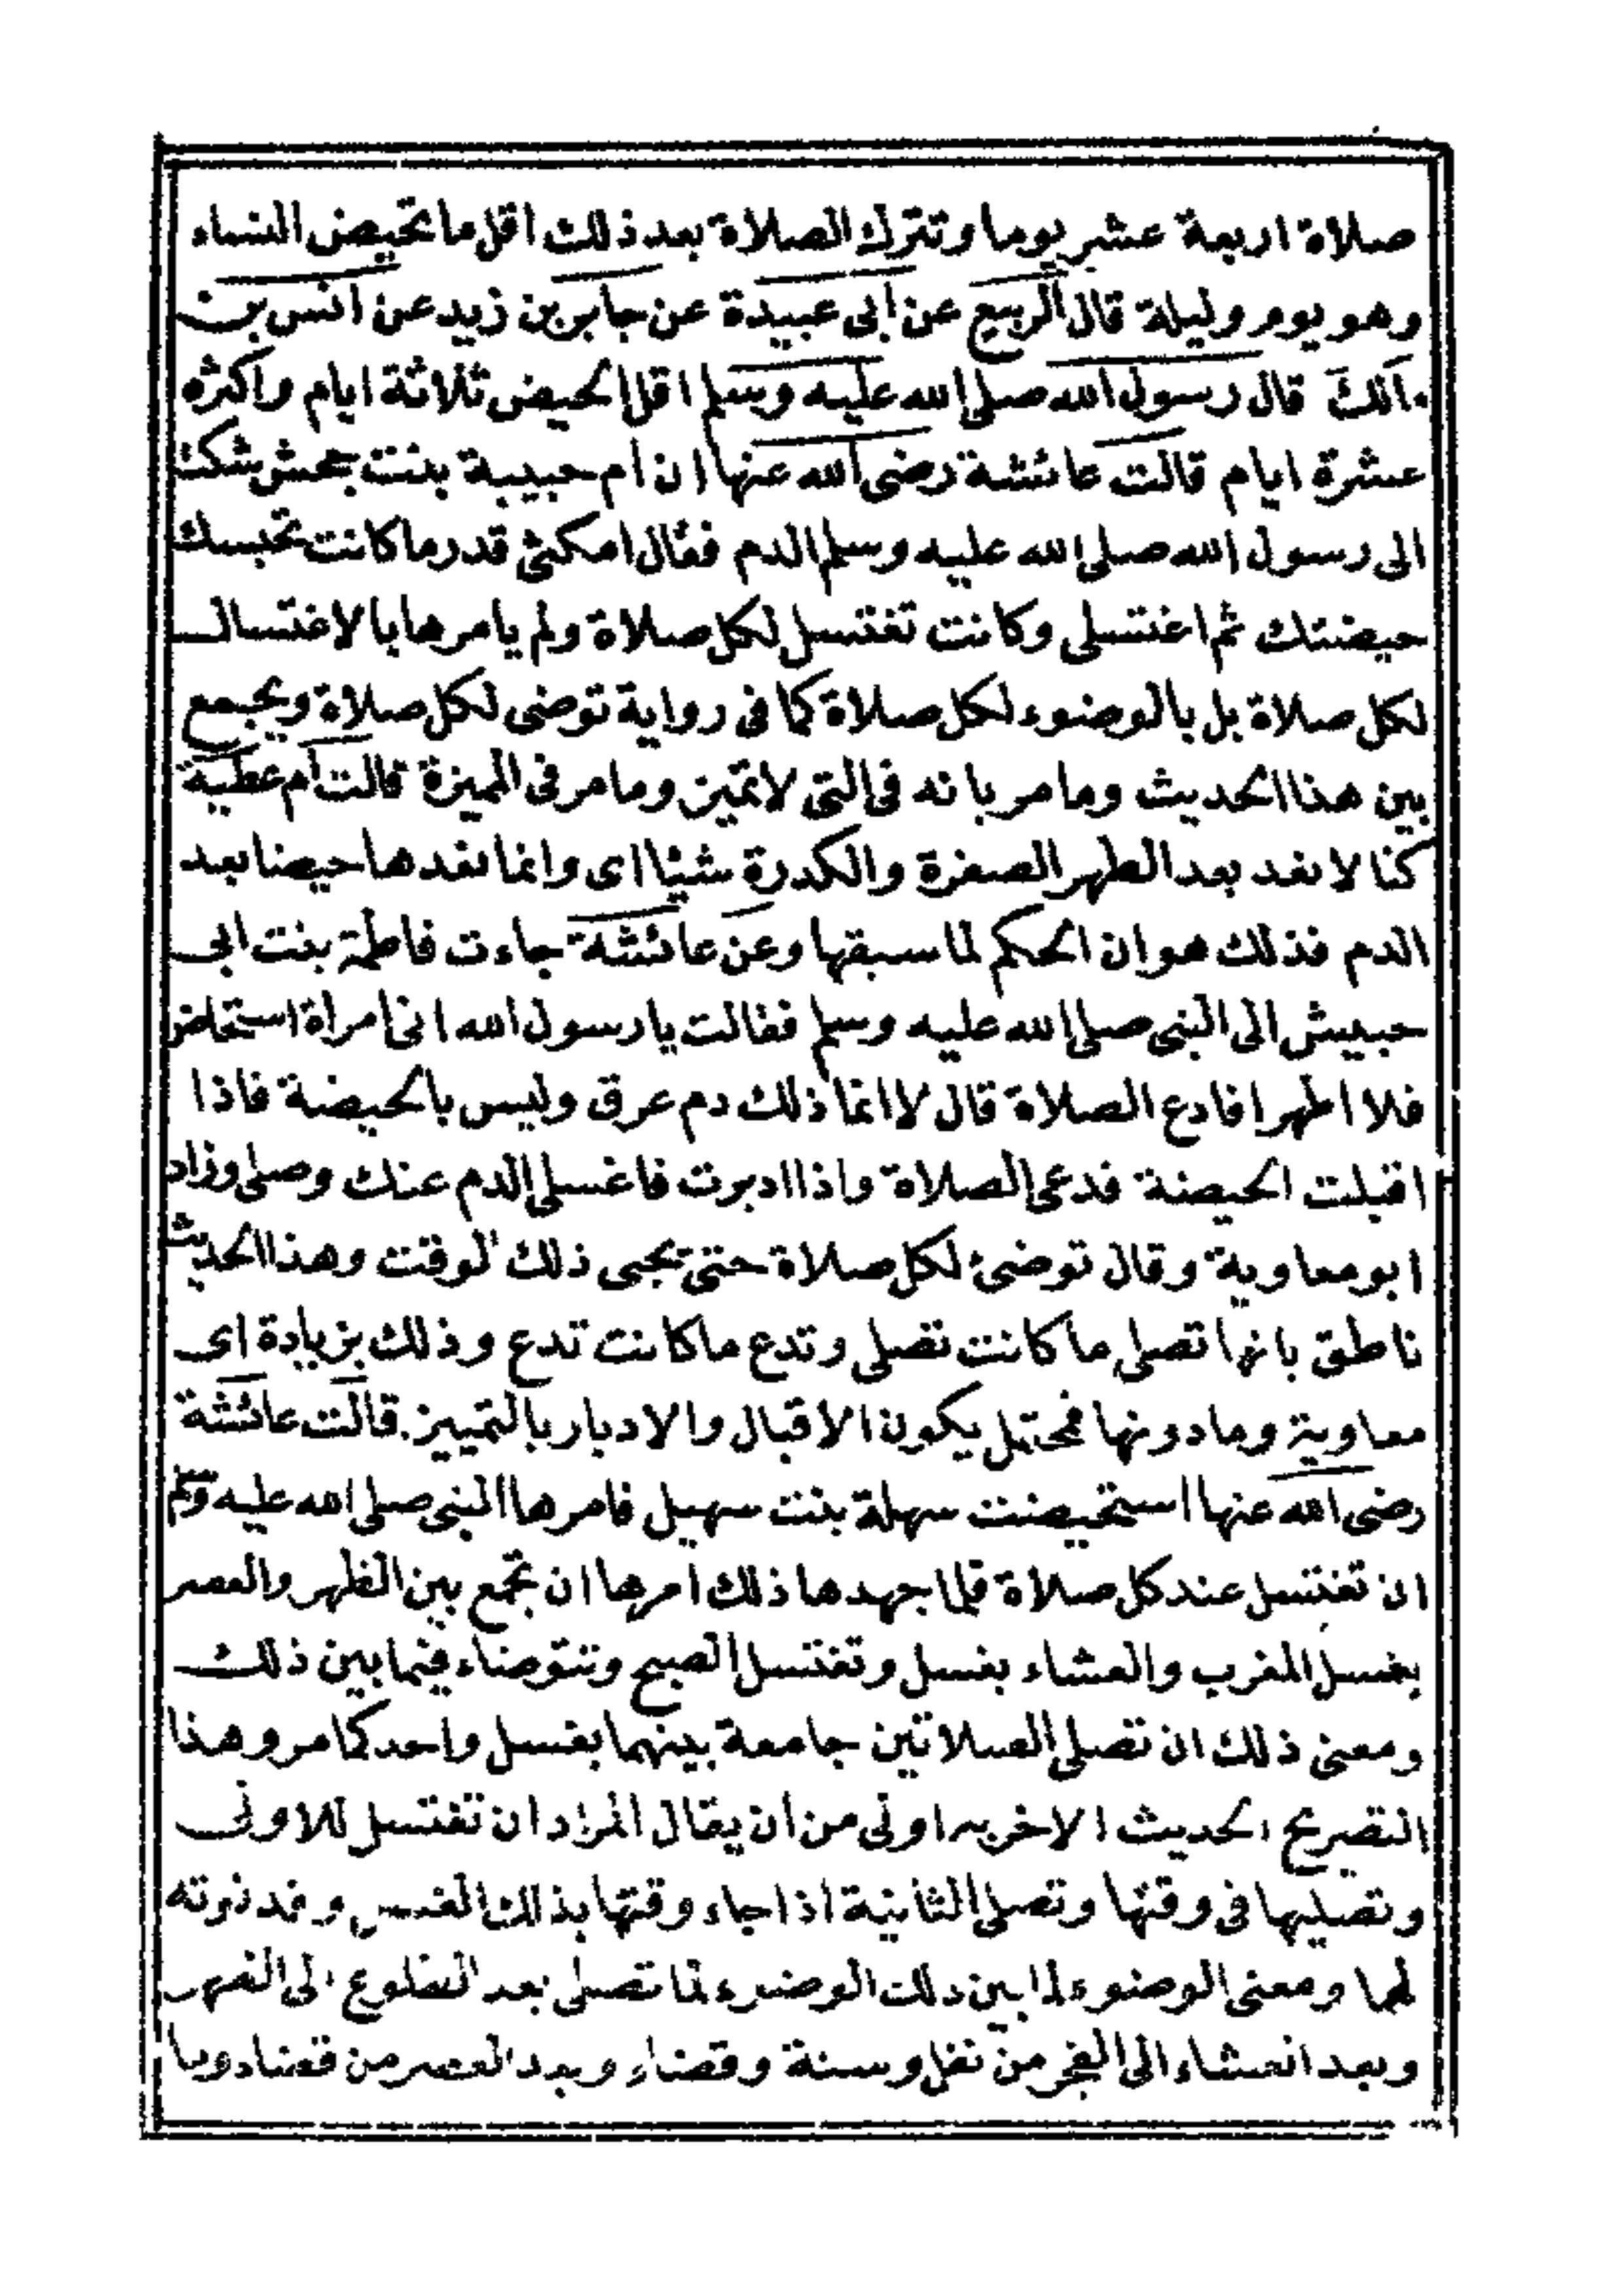 صلاة اربعة عشر يوما وتترك الصلاة بعد ذلك اقل ما تحيض النساء
وهو يوم وليلة قال الربيع عن ابى عبيدة عن جابر بن زيد عن انس بن
مالك قال رسول الله صلى الله عليه وسلم اقل الحيض ثلاثة ايام واكثره
عشرة ايام قالت عائشة رضى الله عنها ان ام حبيبة بنت جحش شكت
الى رسول الله صلى الله عليه وسلم الدم فقال امكثى قدر ما كانت تحبسك
حيضتك ثم اغتسلى وكانت تغتسل لكل صلاة ولم يامرها با لاغتسال
لكل صلاة بل بالوضوء لكل صلاة كما فى رواية توضى لكل صلاة ويجمع
بين هذا الحديث وما مر بانه فى التى لا تميز وما مر فى المميزة قالت ام عطية
كنا لا نعد بعد الطهر الصفرة والكدرة شيئا اى وانما نعدها حيضا بعد
الدم فذلك هو ان الحكم لما سبقها وعن عائشة جاءت فاطمة بنت ابى
حبيش الى النبى صلى الله عليه وسلم فقالت يا رسول الله انى امراة استحاض
فلا اطهر افادع الصلاة قال لا انما ذلك دم عرق وليس بالحيضة فاذا
اقبلت الحيضة فدعى الصلاة واذا ادبرت فاغسلى الدم عنك وصلى وزاد
ابو معاوية وقال توضئ لكل صلاة حتى يجى ذلك الوقت وهذا الحديث
ناطق بانها تصلى ما كانت تصلى وتدع ما كانت تدع وذلك بزيادة اى
معاوية وما دونها فمحتمل يكون الاقبال والادبار بالتمييز. قالت عائشة
رضى الله عنها استحيضت سهلة بنت سهيل فامرها النبى صلى الله عليه وسلم
ان تغتسل عند كل صلاة فلما اجهدها ذلك امرها ان تجمع بين الظهر والعصر
بغسل المغرب والعشاء بغسل وتغتسل الصبح وتتوضاء فيما بين ذلك
ومعنى ذلك ان تصلى الصلاتين جامعة بينهما بغسل واحد كما مر وهذا
التصريح الحديث الاخر به اولى من ان يقال المراد ان تغتسل للاولى
وتصليها فى وقتها وتصلى الثانية اذا جاء وقتها بذلك الغسل وقد نوته
لهما ومعنى الوضوء لما بين ذلك الوضوء لما تصلى بعد الطلوع الى الظهر
وبعد العشاء الى الفجر من نفل وسنة وقضاء وبعد العصر من قضاء وما